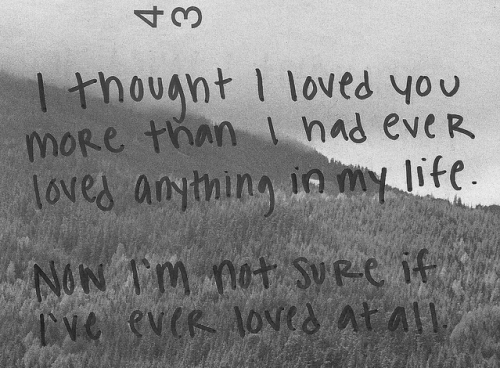 43
I thought I loved you
more than I had ever
loved anything in my life.
Now I'm not sure if
I've ever loved at all.